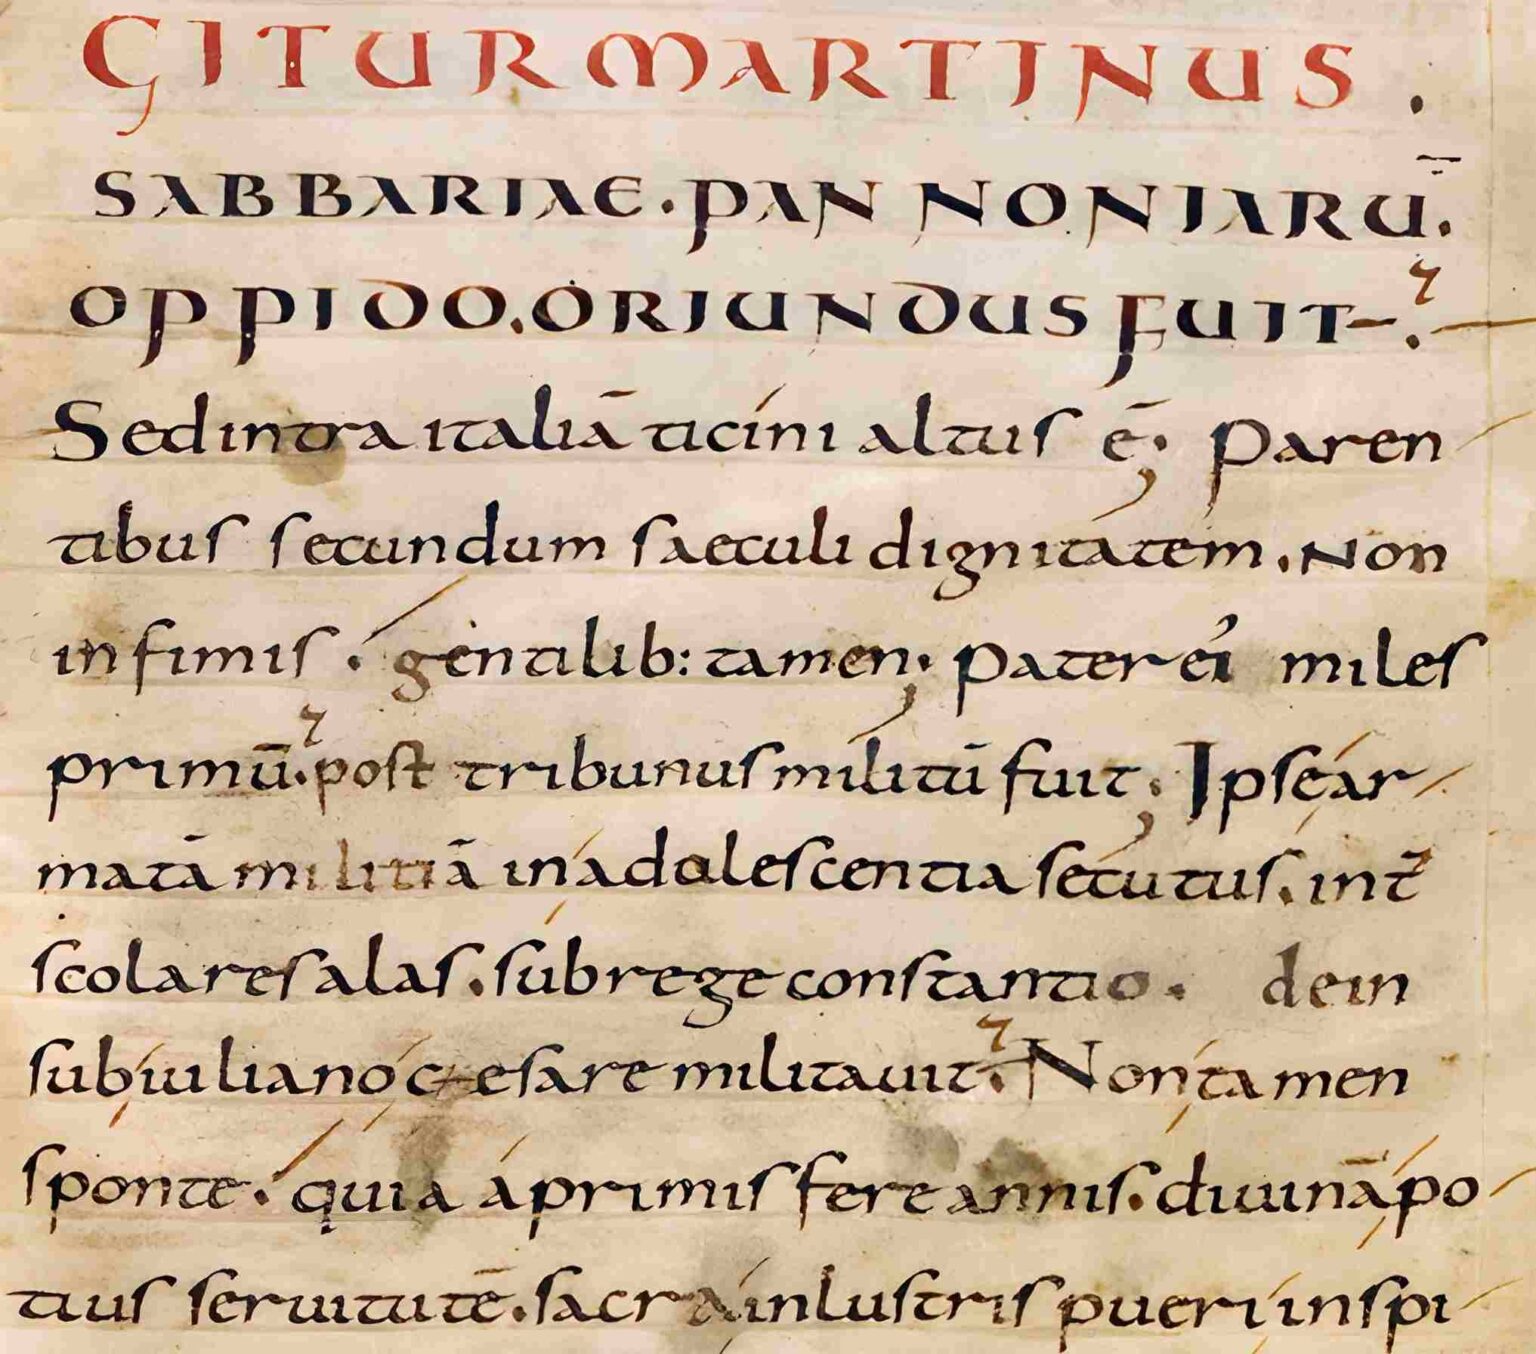 GITUR MARTINUS.
SABBARIAE. PANNONIARŪ.
OPPIDO. ORIUNDUS FUIT.
Sed intra italiā ticini altus ē; Paren
tibus secundum saeculi dignitatem. Non
infimis. gentilib: tamen; Pater ei' miles
primū. post tribunus militū fuit; Ipse ar
matā militiā in adolescentia secutus. int̄
scolares alas. sub rege constantio. dein
sub iuliano cęesare militauit. Non tamen
sponte. quia a primis fere annis. diuinā po
tius seruitutē. sacra inlustris pueri inspi